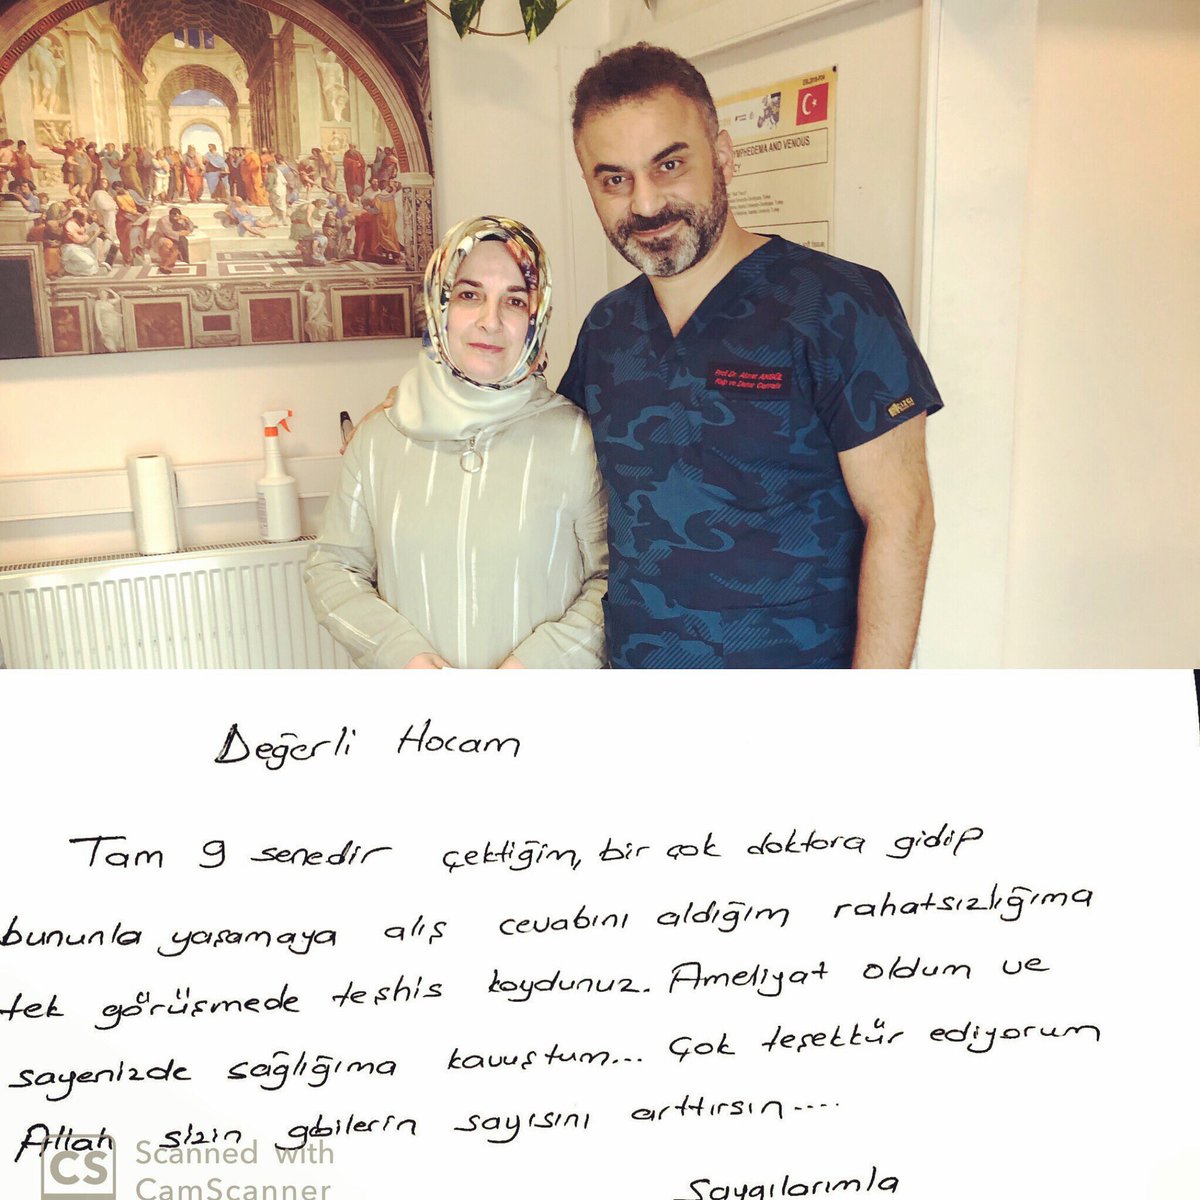 YMPHEDEMA AND VENOUS
Prof. Dr. Ahmet AKGÜL
Kalp ve Damar Cerrahı
Değerli Hocam
Tam 9 senedir çektiğim, bir çok doktora gidip
bununla yaşamaya alış cevabını aldığım rahatsızlığıma
tek görüşmede teşhis koydunuz. Ameliyat oldum ve
sayenizde sağlığıma kavuştum... Çok teşekkür ediyorum
Allah sizin gibilerin sayısını arttırsın....
Saygılarımla
CS Scanned with
CamScanner